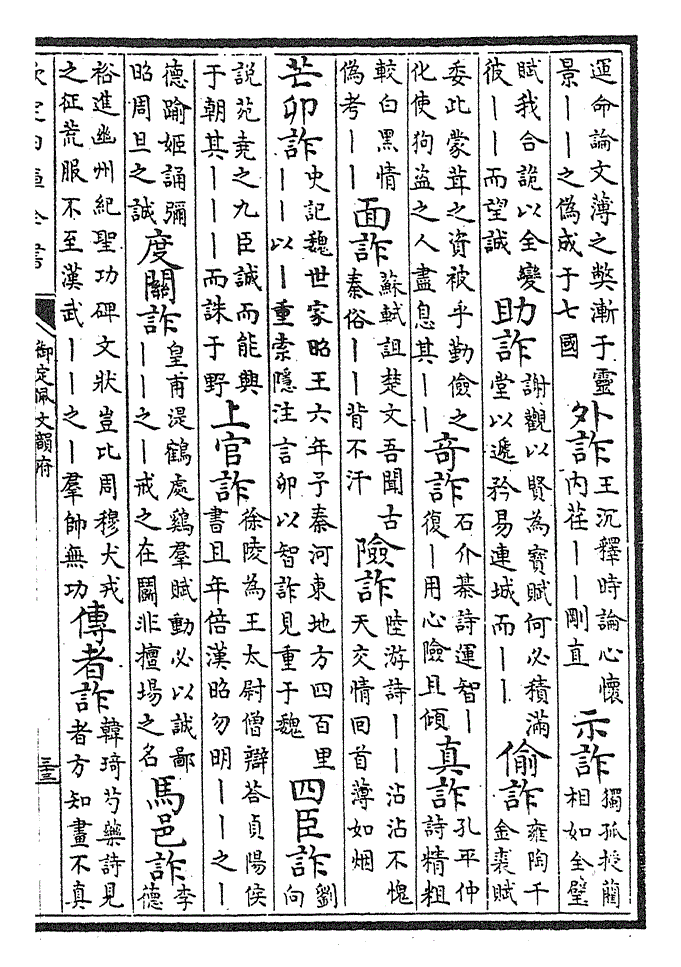 運命論文薄之弊漸于靈景——之偽成于七國 外詐 王沉釋時論心懷内荏——剛直 示詐 獨孤授藺相如全璧
賦我合詭以全變彼——而望誠 助詐 謝觀以賢為寳賦何必積滿堂以遞矜易連城而—— 偷詐 雍陶千金裘賦
委此蒙茸之資被乎勤儉之化使狗盜之人盡息其—— 奇詐 石介棊詩運智—復—用心險且傾 真詐 孔平仲詩精粗
較白黑情偽考—— 面詐 蘇軾詛楚文吾聞古秦俗——背不汗 險詐 陸游詩——沾沾不愧天交情回首薄如烟
芒卯詐 史記魏世家昭王六年予秦河東地方四百里——以—重索隱注言卯以智詐見重于魏 四臣詐 劉向
說苑堯之九臣誠而能興于朝其———而誅于野 上官詐 徐陵為王太尉僧辯答貞陽侯書且年倍漢昭勿明——之—
德踰姬誦彌昭周旦之誠 度關詐 皇甫湜鶴處鷄羣賦動必以誠鄙——之—戒之在鬭非擅場之名 馬邑詐 李德
裕進幽州紀聖功碑文狀豈比周穆犬戎之征荒服不至漢武——之—羣帥無功 傳者詐 韓琦芍藥詩見者方知畫不真
欽定四庫全書
御定佩文韻府
三三